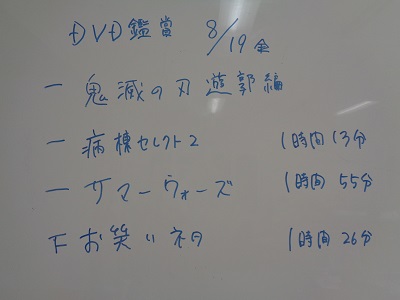 DVD鑑賞 8/19金
一 鬼滅の刃遊郭編
一 病棟セレクト2 1時間13分
一 サマーウォーズ 1時間55分
下 お笑いネタ 1時間26分